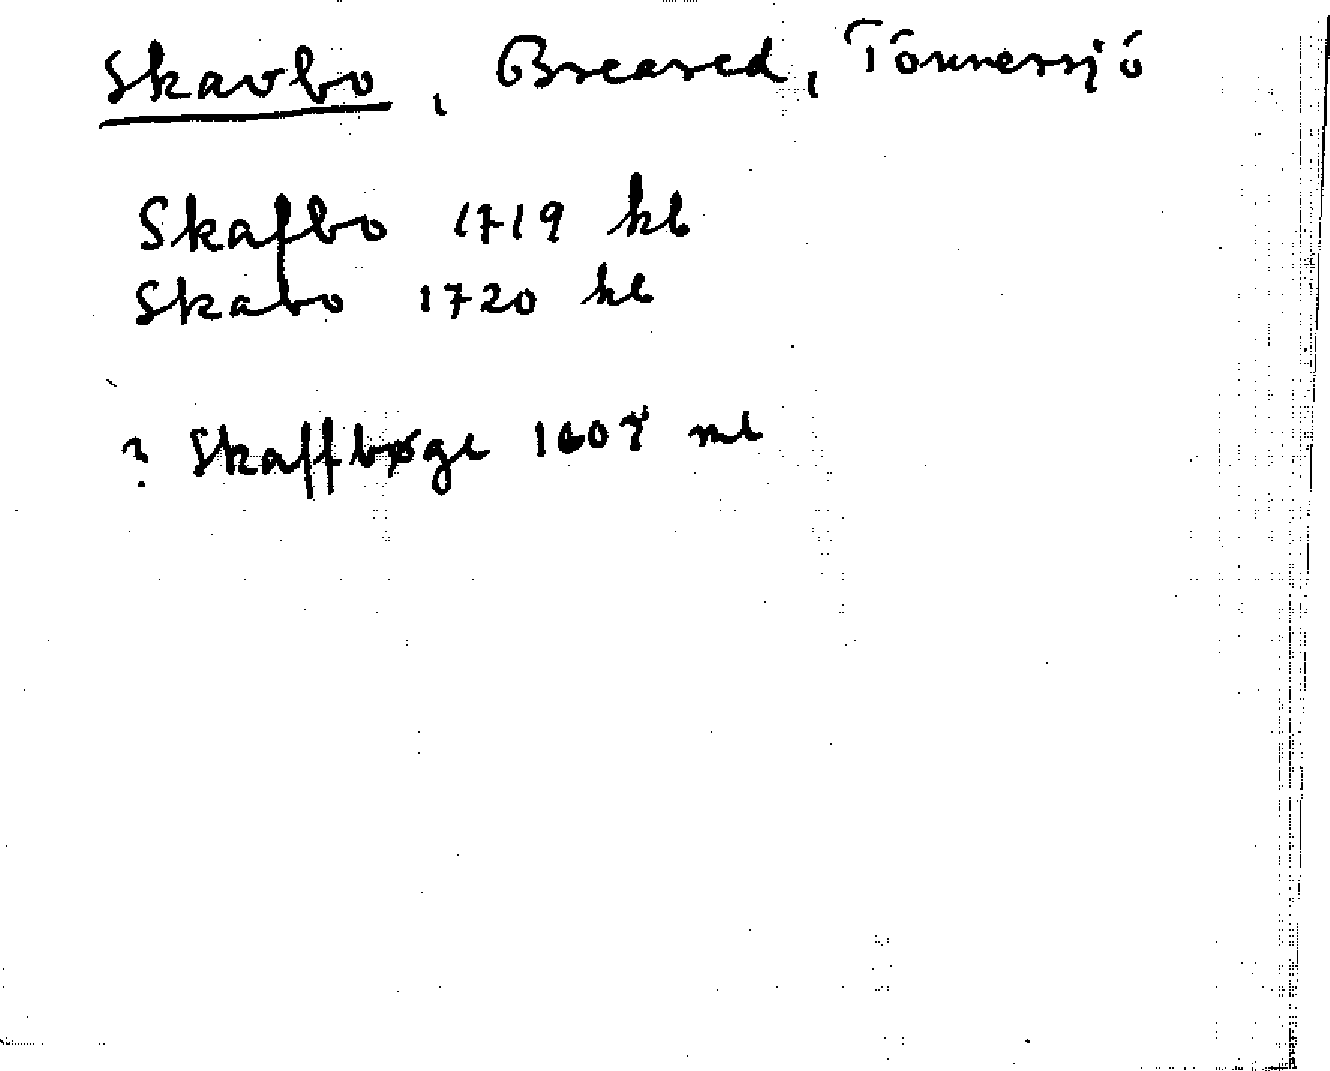 Skavbo, Breared, Tönnersjö
Skafbo 1719 kb
Skabo 1720 kb
? Skaffbøge 1607 ml